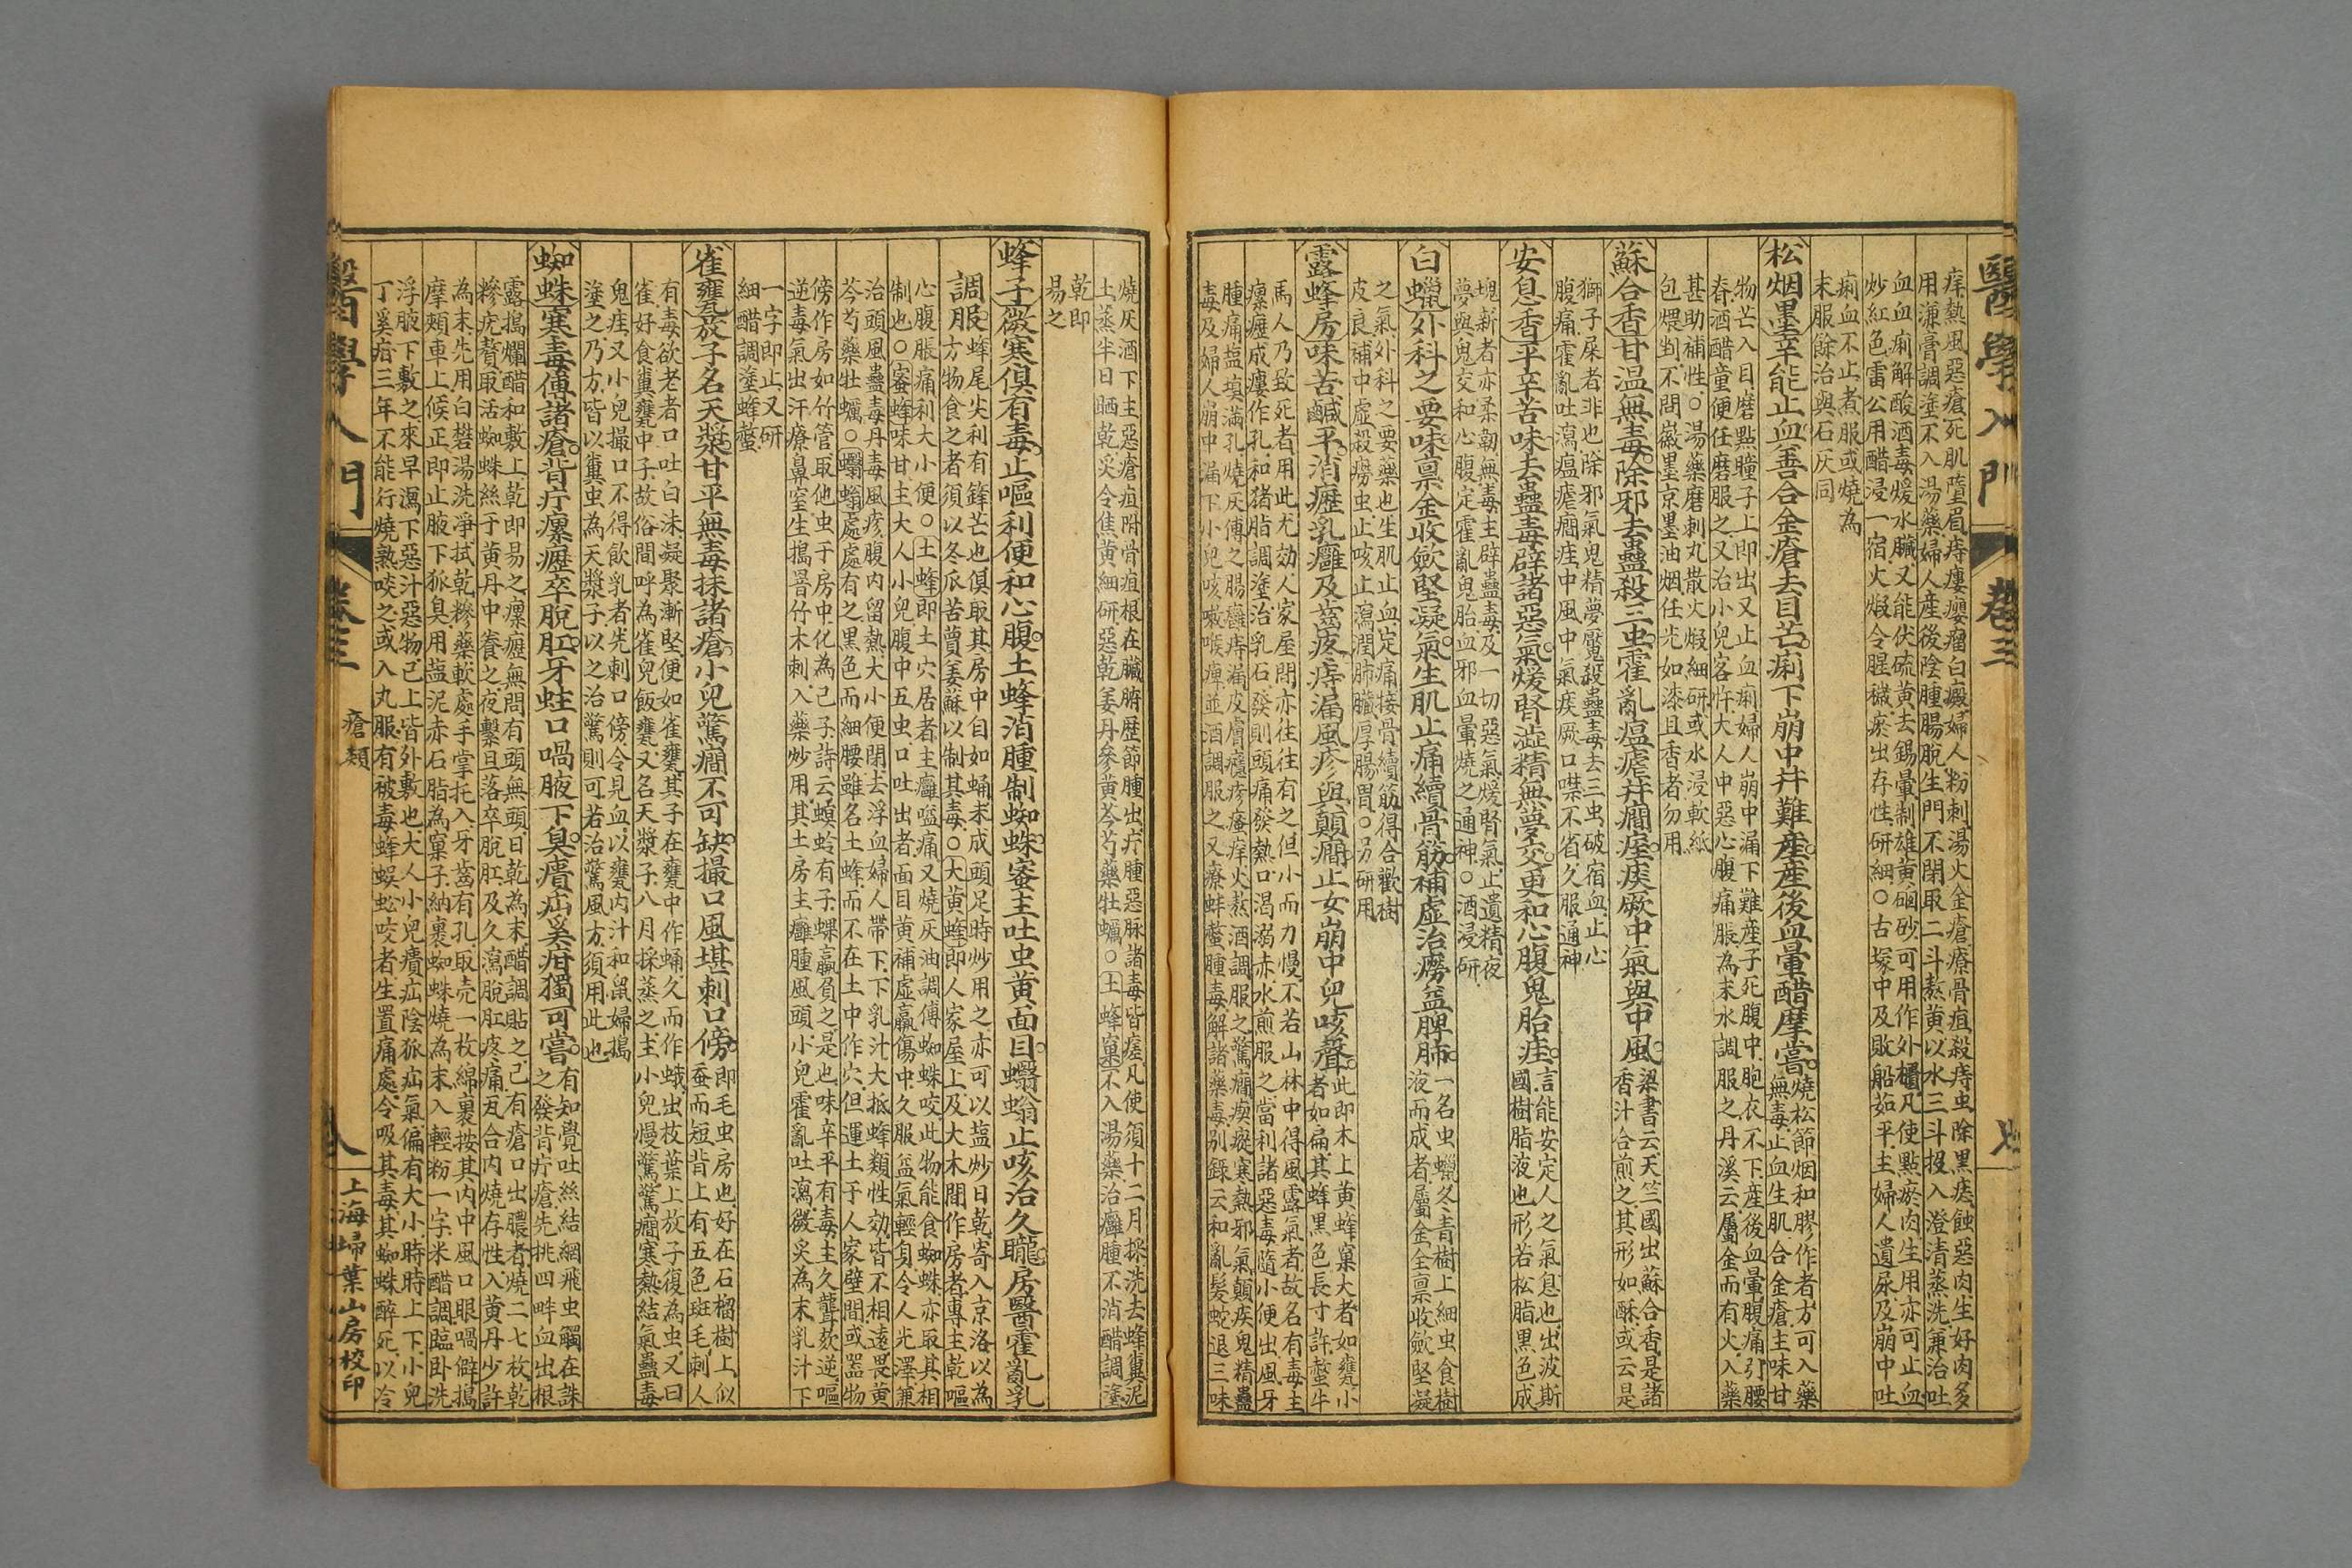 醫學入門
卷三
痒熱風惡瘡死肌墮眉痔瘻癭瘤白癜婦人粉刺湯火金瘡療骨疽殺痔虫除黑痣蝕惡肉生好肉多
用溓膏調塗不入湯藥婦人產後陰腫腸脫生門不閉取二斗熬黄以水三斗投入澄清蒸洗兼治吐
血血痢解酸酒毒煖水臟又能伏硫黄去錫暈制雄黄硇砂可用作外櫃凡使點瘀肉生用亦可止血
炒紅色雷公用醋浸一宿火煆令腥穢瘀出存性研細○古塚中及敗船茹平主婦人遺尿及崩中吐
痢血不止者服或燒為
末服餘治與石灰同
松烟墨辛能止血善合金瘡去目芒痢下崩中幷難產產後血暈醋摩嘗
燒松節烟和膠作者方可入藥
無毒止血生肌合金瘡主味甘
物芒入目磨點瞳子上即出又止血痢婦人崩中漏下難產子死腹中胞衣不下產後血暈腹痛引腰
脊酒醋童便任磨服之又治小兒客忤大人中惡心腹痛脹為末水調服之丹溪云屬金而有火入藥
甚助補性○湯藥磨刺丸散火煆細研或水浸軟紙
包煨剉不問徽墨京墨油烟任光如漆且香者勿用
蘇合香甘温無毒除邪去蠱殺三虫霍亂瘟瘧幷癎痓痰厥中氣與中風
梁書云天竺國出蘇合香是諸
香汁合煎之其形如酥或云是
獅子屎者非也除邪氣鬼精夢魘殺蠱毒去三虫破宿血止心
腹痛霍亂吐瀉瘟瘧癎痓中風中氣痰厥口噤不省久服通神
安息香平辛苦味去蠱毒辟諸惡氣煖腎澁精無夢交更和心腹鬼胎疰
言能安定人之氣息也出波斯
國樹脂液也形若松脂黑色成
塊新者亦柔韌無毒主辟蠱毒及一切惡氣煖腎氣止遺精夜
夢與鬼交和心腹定霍亂鬼胎血邪血暈燒之通神○酒浸研
白蠟外科之要味稟金收歛堅凝氣生肌止痛續骨筋補虚治癆益脾肺
一名虫蠟冬青樹上細虫食樹
液而成者屬金全稟收歛堅凝
之氣外科之要藥也生肌止血定痛接骨續筋得合歡樹
皮良補中虚殺癆虫止咳止瀉潤肺臟厚腸胃○另研用
露蜂房味苦鹹平消癧乳癰及齒疼痔漏風疹與顛癎止女崩中兒咳聲
此即木上黄蜂窠大者如甕小
者如扁其蜂黑色長寸許螫牛
馬人乃致死者用此尤効人家屋間亦往往有之但小而力慢不若山林中得風露氣者故名有毒主
瘰癧成瘻作孔和猪脂調塗治乳石發則頭痛發熱口渴溺赤水煎服之當利諸惡毒隨小便出風牙
腫痛塩填滿孔燒灰傅之腸癰痔漏皮膚癮疹瘙痒火熬酒調服之驚癎瘈瘲寒熱邪氣顛疾鬼精蠱
毒及婦人崩中漏下小兒咳嗽喉痺並酒調服之又療蚌螫腫毒解諸藥毒别錄云和亂髮蛇退三味
燒灰酒下主惡瘡疽附骨疽根在臟腑歴節腫出疔腫惡脉諸毒皆瘥凡使須十二月採洗去蜂糞泥
土蒸半日晒乾炙令焦黄細研惡乾姜丹參黄芩芍藥牡蠣○土蜂窠不入湯藥治癰腫不消醋調塗
乾即
易之
蜂子微寒俱有毒止嘔利便和心腹土蜂消腫制蜘蛛蜜主吐虫黄面目蠮螉止咳治久聾房醫霍亂乳
調服
蜂尾尖利有鋒芒也俱取其房中自如蛹未成頭足時炒用之亦可以塩炒日乾寄入京洛以為
方物食之者須以冬瓜苦蕒姜蘇以制其毒○大黄蜂即人家屋上及大木間作房者專主乾嘔
心腹脹痛利大小便○土蜂即土穴居者主癰嗌痛又燒灰油調傅蜘蛛咬此物能食蜘蛛亦取其相
制也○蜜蜂味甘主大人小兒腹中五虫口吐出者面目黄補虚羸傷中久服益氣輕身令人光澤兼
治頭風蠱毒丹毒風疹腹内留熱大小便閉去浮血婦人帶下下乳汁大抵蜂類性効皆不相遠畏黄
芩芍藥牡蠣○蠮螉處處有之黑色而細腰雖名土蜂而不在土中作穴但運土于人家壁間或器物
傍作房如竹管取他虫于房中化為己子詩云螟蛉有子蜾蠃負之是也味辛平有毒主久聾欬逆嘔
逆毒氣出汗療鼻窒生搗罯竹木刺入藥炒用其土房主癰腫風頭小兒霍亂吐瀉微炙為末乳汁下
一字即止又研
細醋調塗蜂螫
雀甕放子名天漿甘平無毒抹諸瘡小兒驚癎不可缺撮口風堪刺口傍
即毛虫房也好在石榴樹上似
蚕而短背上有五色斑毛刺人
有毒欲老者口吐白沫凝聚漸堅便如雀甕其子在甕中作蛹久而作蛾出枝葉上放子復為虫又曰
雀好食糞甕中子故俗間呼為雀兒飯甕又名天漿子八月採蒸之主小兒慢驚驚癎寒熱結氣蠱毒
鬼疰又小兒撮口不得飲乳者先刺口傍令見血以甕内汁和鼠婦搗
塗之乃方皆以糞虫為天漿子以之治驚則可若治驚風方須用此也
蜘蛛寒毒傅諸瘡背疔瘰癧卒脫肛牙蛀口喎腋下臭㿉疝奚疳獨可嘗
有知覺吐絲結網飛虫觸在誅
之發背疔瘡先挑四畔血出根
露搗爛醋和敷上乾即易之瘰癧無問有頭無頭日乾為末醋調貼之已有瘡口出膿者燒二七枚乾
糝疣贅取活蜘蛛絲于黄丹中養之夜繫旦落卒脫肛及久瀉脫肛疼痛瓦合内燒存性入黄丹少許
為末先用白礬湯洗淨拭乾糝藥軟處手掌托入牙齒有孔取壳一枚綿裹按其内中風口眼喎僻搗
摩頰車上候正即止腋下狐臭用塩泥赤石脂為窠子納裹蜘蛛燒為末入輕粉一字米醋調臨卧洗
浮腋下敷之來早瀉下惡汁惡物已上皆外敷也大人小兒㿉疝陰狐疝氣偏有大小時時上下小兒
丁奚疳三年不能行燒熟啖之或入丸服有被毒蜂蜈蚣咬者生置痛處令吸其毒其蜘蛛醉死以冷
醫學入門
卷三
瘡類
八
上海埽葉山房校印